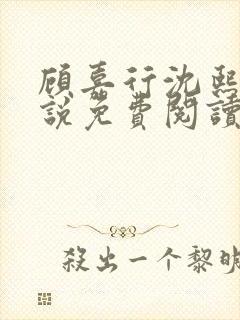 顾嘉行沈熙
說免費閱讀
殺出一个黎明